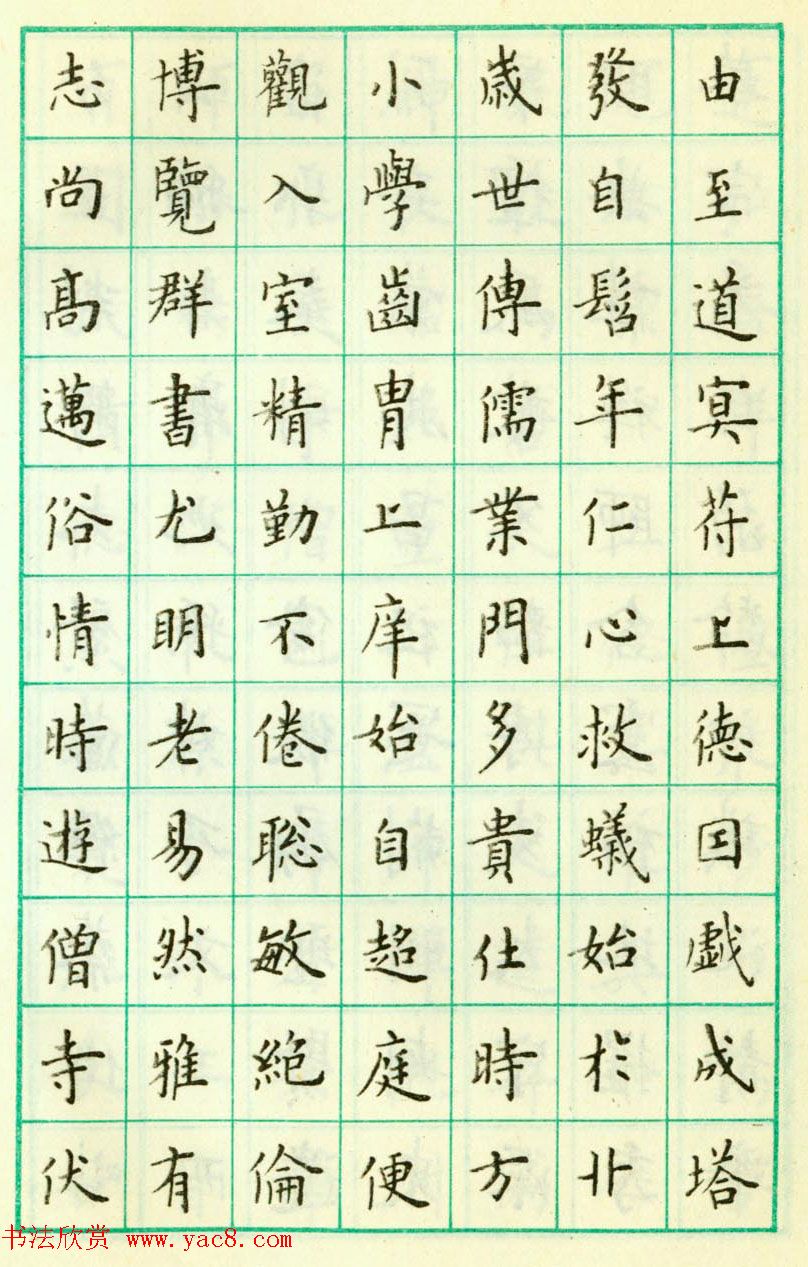 由至道冥符上德囙戯成塔
發自髫年仁心救蟻始於丱
歳世傳儒業門多貴仕時方
小學齒胄上庠始自超庭便
觀入室精勤不倦聡敏絶倫
博覽群書尤明老易然雅有
志尚髙邁俗情時遊僧寺伏
书法欣赏 www.yac8.com